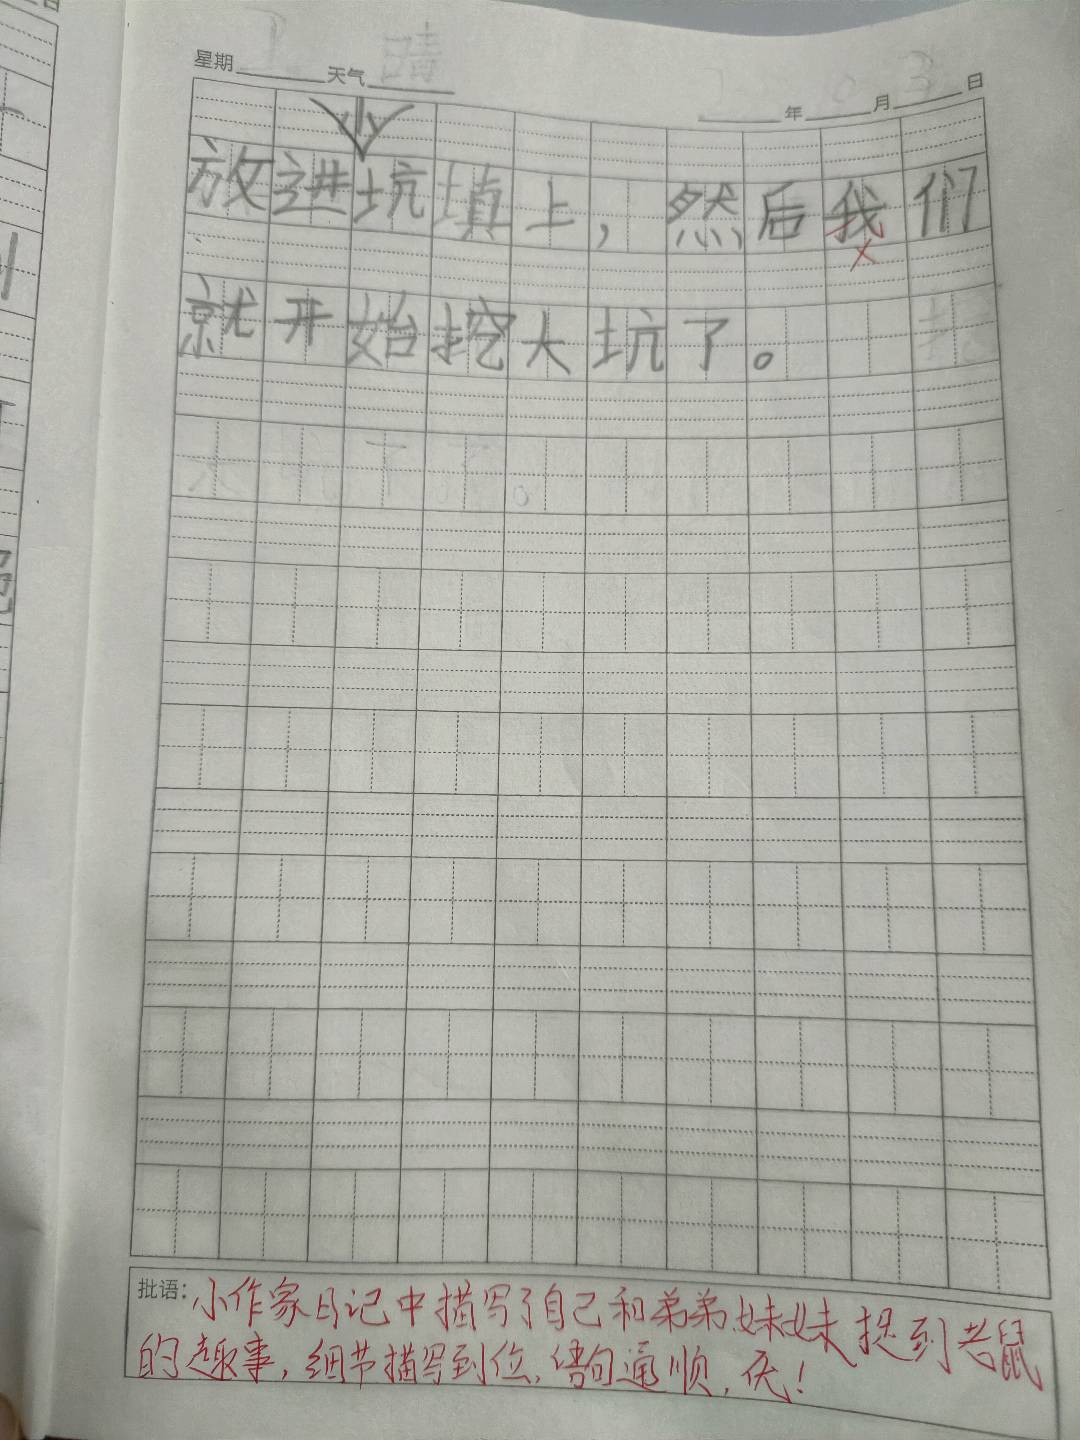 星期 天气 晴 年 月 日
放进坑填上，然后我们
就开始挖大坑了。
批语：小作家日记中描写了自己和弟弟妹妹捉到老鼠
的趣事，细节描写到位，语句通顺，优！